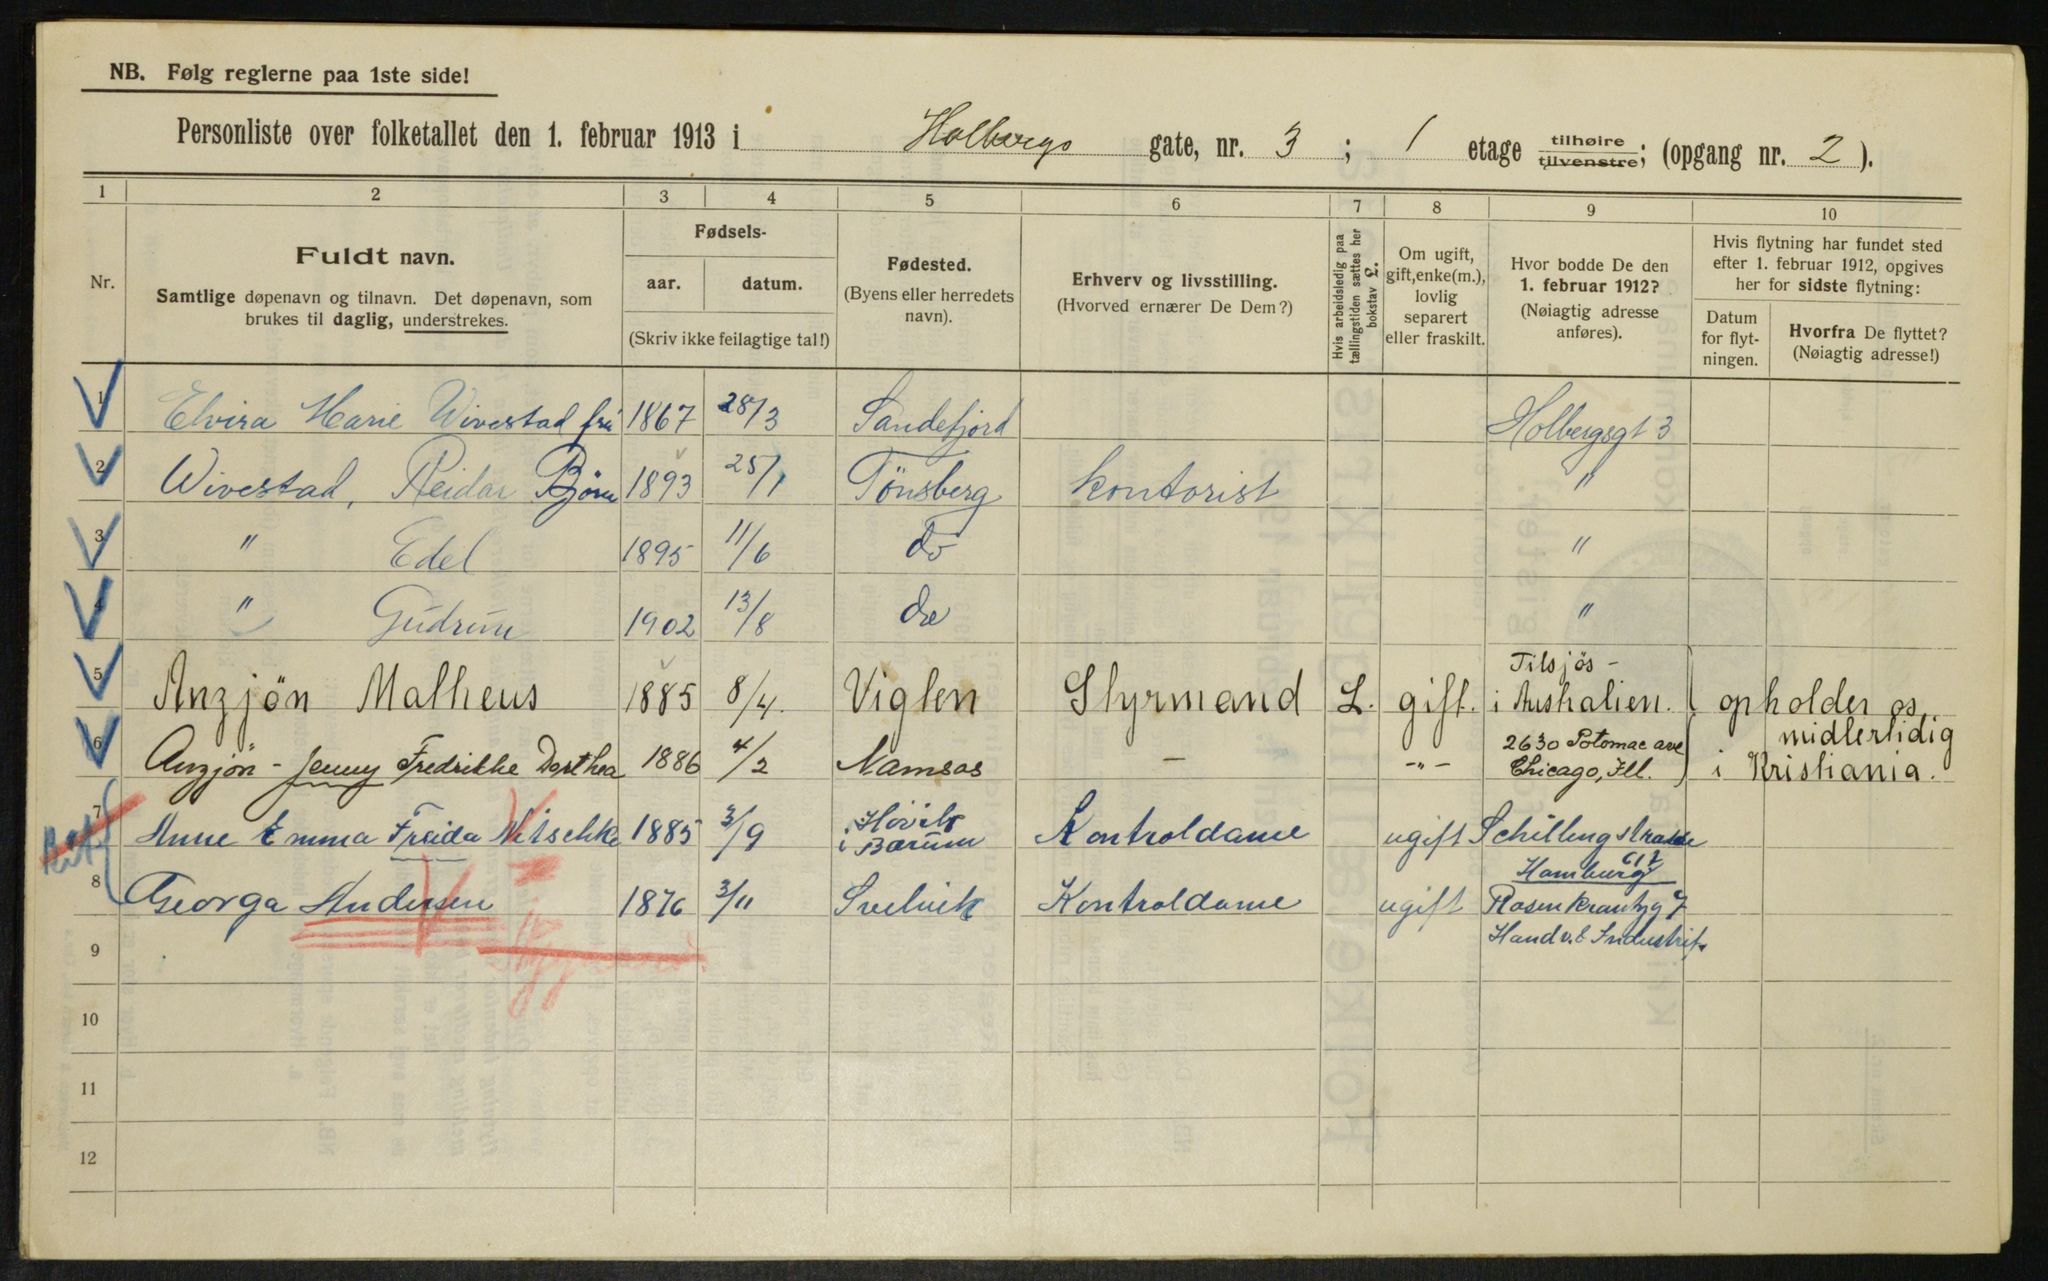 NB. Følg reglerne paa 1ste side!
Personliste over folketallet den 1. februar 1913 i Holbergs gate, nr. 3 ; 1 etage tilhøire tilvenstre; (opgang nr. 2 ).
1 2 3 4 5 6 7 8 9 10
Nr.
Fuldt navn.
Samtlige døpenavn og tilnavn. Det døpenavn, som
brukes til daglig, understrekes.
Fødsels-
aar. datum.
(Skriv ikke feilagtige tal!)
Fødested.
(Byens eller herredets
navn).
Erhverv og livsstilling.
(Hvorved ernærer De Dem?)
Hvis arbeidsledig paa
tællingstiden sættes her
bokstav L.
Om ugift,
gift, enke(m.),
lovlig
separert
eller fraskilt.
Hvor bodde De den
1. februar 1912?
(Nøiagtig adresse
anføres).
Hvis flytning har fundet sted
efter 1. februar 1912, opgives
her for sidste flytning:
Datum
for flyt-
ningen.
Hvorfra De flyttet?
(Nøiagtig adresse!)
1 Elvira Marie Wivestad fru 1867 28/3 Sandefjord Holbergsgt 3
2 Wivestad, Reidar Bjørn 1893 25/1 Tönsberg kontorist "
3 " Edel 1895 11/6 do "
4 " Gudrun 1902 13/8 do "
5 Anzjön Matheus 1885 8/4. Viglen Styrmand L. gift. Tilsjös -
i Australien. opholder os
6 Anzjön - Jenny Fredrikke Dorthea 1886 4/2 Namsos - -"- 2630 Potomac ave midlertidig
Chicago, Ill. i Kristiania.
7 Anne Emma Freida Nitschke 1885 3/9 i Høvik i Bærum Kontroldame ugift Schillingstrasse
Hamburg
8 Georga Andersen 1876 3/11 Svelvik Kontroldame ugift Rosenkrantzg 7
Handv. & Industrif.
9
10
11
12